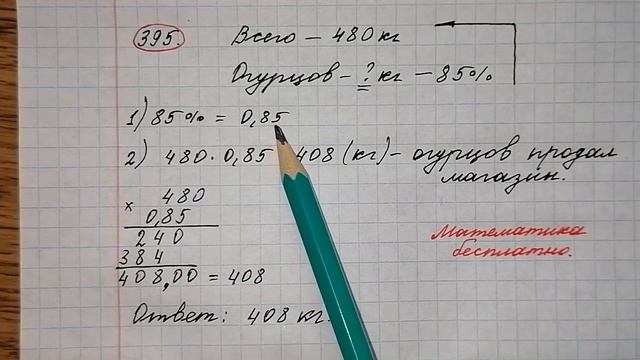 395. Всего – 480 кг
Огурцов – ? кг – 85%
1) 85% = 0,85
2) 480 · 0,85 408 (кг) – огурцов продал
магазин.
× 480
0,85
240
384
408,00 = 408
Математика
бесплатно.
Ответ: 408 кг.